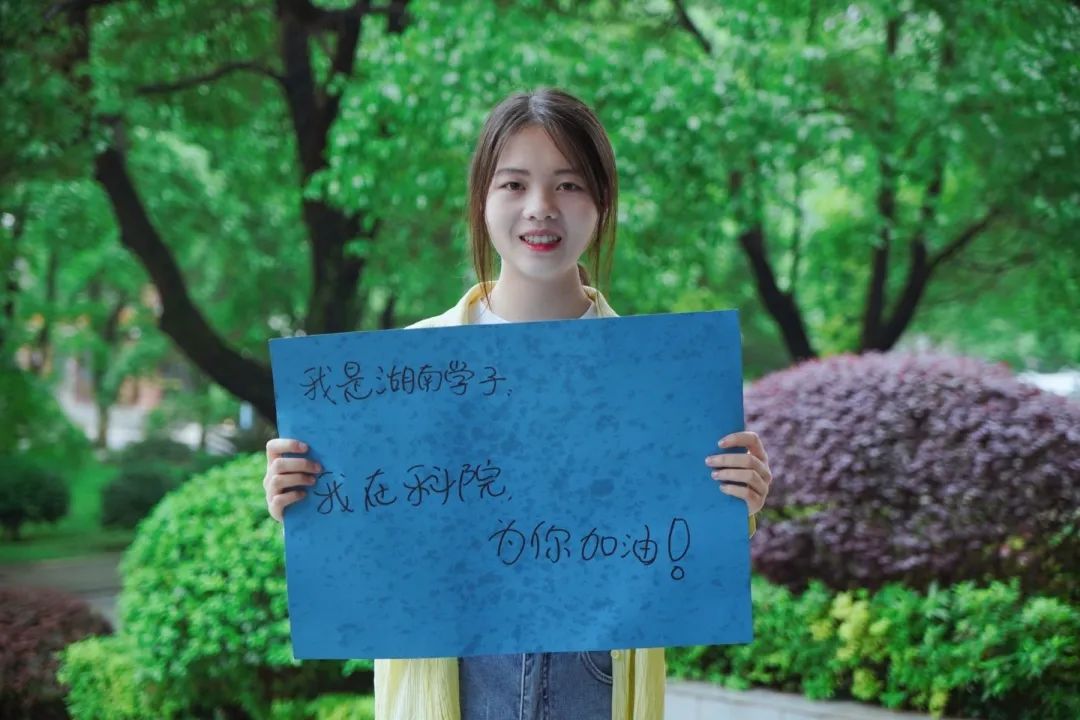 我是湖南学子,
我在科院,
为你加油!